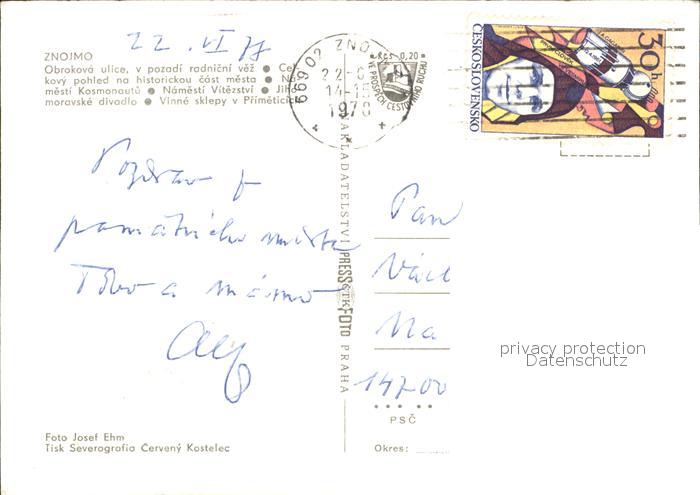 22.VI 78
ZNOJMO
Obroková ulice, v pozadí radniční věž ● Cel
kový pohled na historickou část města ● Ná
městí Kosmonautů ● Náměstí Vítězství ● Jih
moravské divadlo ● Vinné sklepy v Příměticí
669 02 ZNO
22.-6
14-18
1978
Kčs 0,20
VE PROSPĚCH CESTOVNÍHO RUCHU
ČESKOSLOVENSKO
30h
Pozdrav z
památného města
Tobo a mámo
NAKLADATELSTVÍ PRESSFOTO PRAHA
ČTK
Pan
Václ
Na
147 00
PSČ
Okres:
privacy protection
Datenschutz
Foto Josef Ehm
Tisk Severografia Červený Kostelec